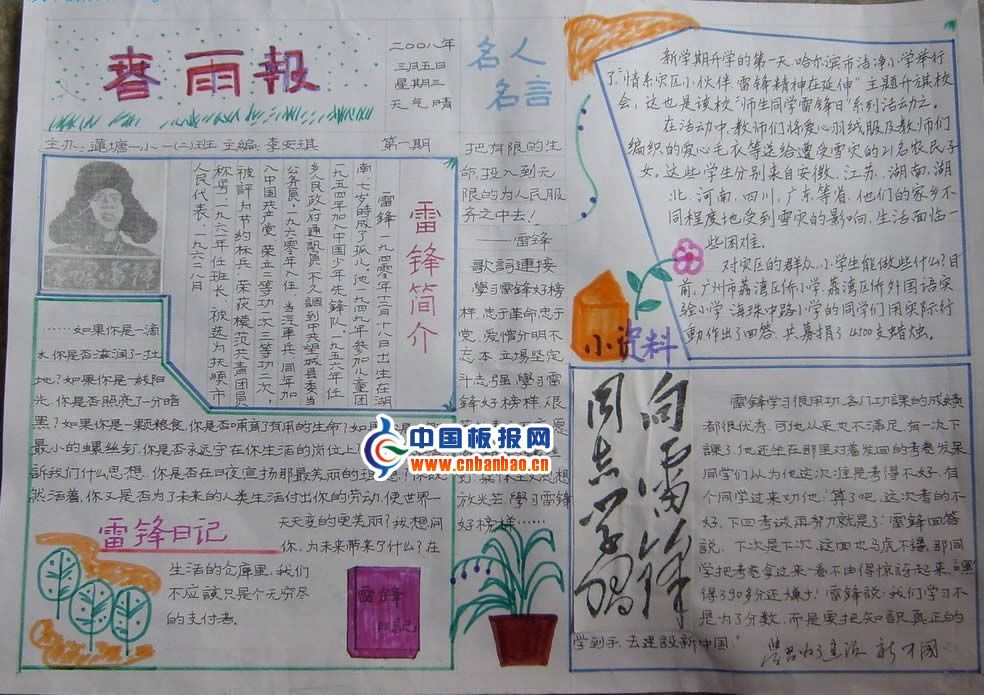 春雨報
二00八年
三月五日
星期三
天气晴
主办:蓮塘一小一(二)班 主編:李安琪
第一期
名人
名言
把有限的生
命,投入到无
限的为人民服
务之中去!
——雷锋
歌詞連接
學习雷锋好榜
样,忠于革命忠于
党,爱憎分明不
忘本,立場坚定
斗志强,學习雷
锋好榜样,
放光芒,學习雷锋
好榜样……
雷锋简介
雷锋,一九四0年十二月十八日出生在湖
南,七岁時成了孤儿。他一九四九年参加儿童团
一九五四年加入中国少年先鋒队,一九五六年任
乡人民政府通訊員,不久調到中共望城县委当
公务員,一九六0年入伍,当汽車兵,同年加
入中国共产党,荣立二等功一次,三等功二次,
被評为节约标兵,荣获模范共青团員
称号,一九六一年任班長,被选为扶順市
人民代表,一九六二八月
……如果你是一滴
水,你是否滋润了一寸土
地?如果你是一綫阳
光,你是否照亮了一分暗
黑?如果你是一颗粮食,你是否哺育了有用的生命?如果
最小的螺丝钉,你是否永遠守在你生活的岗位上
訴我们什么思想,你是否在日夜宣扬那最美丽的理想?你既
然活着,你又是否为了未来的人类生活付出你的劳动,使世界一
天天变的更美丽?我想问
你,为未來带来了什么?在
生活的仓庫里,我们
不应該只是个无穷尽
的支付者。
雷锋日记
雷锋
日記
新学期开学的第一天,哈尔滨市洁净小学举行
了"情系灾区小伙伴,雷锋精神在延伸"主题升旗校
会,这也是该校"师生同学雷锋日"系列活动之一。
在活动中,教师们将爱心羽绒服及教师们
编织的爱心毛衣等送给遭受雪灾的21名农民子
女。这些学生分别来自安徽、江苏、湖南、湖
北、河南、四川、广东等省,他们的家乡不
同程度地受到雪灾的影响,生活面临一
些困难。
对灾区的群众,小学生能做些什么?目
前,广州市荔湾区侨小学、荔湾区侨外国语实
验小学、海珠中路小学的同学们用实际行
动作出了回答,共募捐了4500支蜡烛。
小资料
向雷锋
同志学习
雷锋学习很用功,各门功課的成績
都很优秀,可他从来也不满足,有一次下
課了,他还坐在那里对着发回的考卷发呆
同学们以为他这次准是考得不好,有
个同学过来劝他:"算了吧,这次考的不
好,下回考试再努力就是了。"雷锋回答
説:"下次是下次,这回也马虎不得。"那同
学把考卷拿过来一看,不由得惊訝起来:
得了90多分还嫌少!雷锋説:我们学习不
是为了分数,而是要把知識真正的
学到手,去建設新中国!
中国板报网
www.cnbanbao.cn